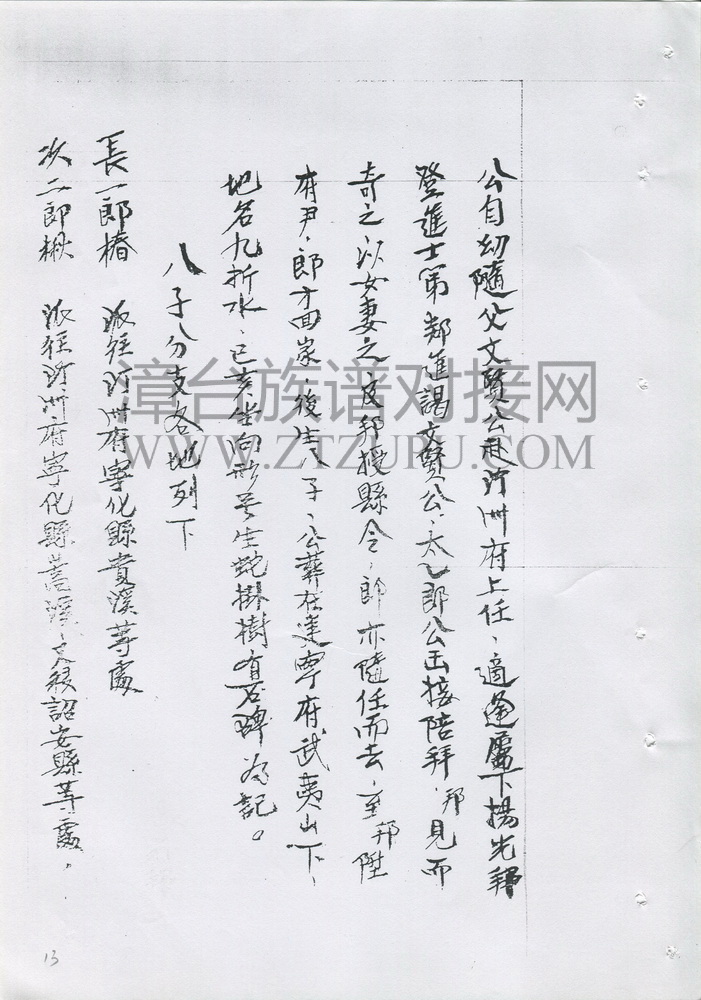 公自幼隨父文賢公赴汀州府上任、適逢屬下楊光
登進士第、邦進謁文賢公、太乙郎公出接陪拜、邦見而
奇之、以女妻之、及邦授縣令、郎亦隨任而去、至邦陞
府尹、郎才回家、後生八子、公葬在建寧府武夷山下、
地名九折水、已亥坐向形号生蛇掛樹有石碑為記。
八子分支各地列下
長一郎椿 派往汀州府寧化縣貴溪等處
次二郎楸 派往汀州府寧化縣 溪、又移詔安縣等處。
漳台族谱对接网
WWW.ZTZUPU.COM
13